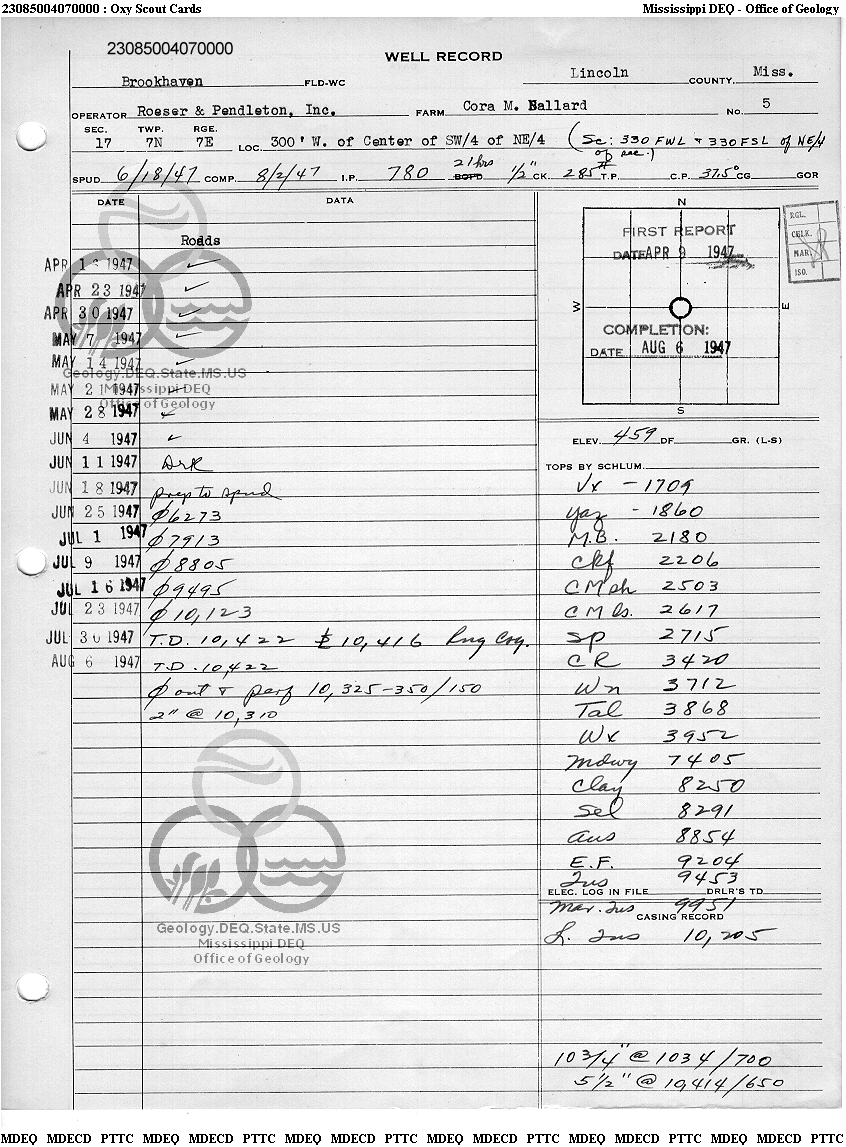 23085004070000 : Oxy Scout Cards Mississippi DEQ - Office of Geology
23085004070000
WELL RECORD
Brookhaven FLD-WC Lincoln COUNTY Miss.
OPERATOR Roeser & Pendleton, Inc. FARM Cora M. Ballard NO. 5
SEC. TWP. RGE.
17 7N 7E LOC. 300' W. of Center of SW/4 of NE/4 (Sc: 330 FWL & 330 FSL of NE/4
of sec.)
21 hrs
SPUD 6/18/47 COMP. 8/2/47 I.P. 780 BOPD 1/2" CK. 285# T.P. C.P. 37.5° CG GOR
DATE DATA
Roads
APR 1 1947 ✓
APR 23 1947 ✓
APR 30 1947 ✓
MAY 7 1947 ✓
MAY 14 1947 ✓
MAY 21 1947 ✓
MAY 28 1947 ✓
JUN 4 1947 ✓
JUN 11 1947 Drk
JUN 18 1947 prep to spud
JUN 25 1947 φ6273
JUL 1 1947 φ7913
JUL 9 1947 φ8805
JUL 16 1947 φ9495
JUL 23 1947 φ10,123
JUL 30 1947 T.D. 10,422 10,416 Rng Csg.
AUG 6 1947 T.D. 10422
φ out & perf 10,325-350/150
2" @ 10,310
N
W
E
S
FIRST REPORT
DATE APR 9 1947
COMPLETION:
DATE AUG 6 1947
RGL.
CHLK.
MAR.
ISO.
ELEV. 459 DF GR. (L-S)
TOPS BY SCHLUM.
Vx - 1709
Yaz - 1860
M.B. 2180
Ckf 2206
CM sh 2503
CM ls. 2617
Sp 2715
CR 3420
Wn 3712
Tal 3868
Wx 3952
Mdwy 7405
Clay 8250
Sel 8291
Aus 8854
E.F. 9204
Tus 9453
ELEC. LOG IN FILE DRLR'S TD
Mar. Tus 9951
CASING RECORD
L. Tus 10,205
10 3/4" @ 1034/700
5 1/2" @ 10,414/650
Geology.DEQ.State.MS.US
Mississippi DEQ
Office of Geology
Geology.DEQ.State.MS.US
Mississippi DEQ
Office of Geology
MDEQ MDECD PTTC MDEQ MDECD PTTC MDEQ MDECD PTTC MDEQ MDECD PTTC MDEQ MDECD PTTC MDEQ MDECD PTTC